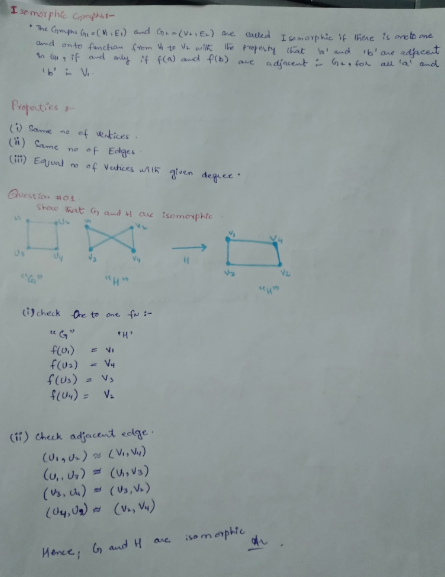 Isomorphic Graphs:-
* The Graphs G₁=(V₁,E₁) and G₂=(V₂,E₂) are called Isomorphic if there is one to one
and onto function from V₁ to V₂ with the property that 'a' and 'b' are adjacent
in G₁, if and only if f(a) and f(b) are adjacent in G₂, for all 'a' and
'b' in V₁
Properties :-
(i) Same no of vertices.
(ii) Same no of Edges.
(iii) Equal no of vertices with given degree.
Question #01.
Show that G and H are isomorphic.
U₁ U₂ V₁ V₂ V₁ V₄
H
U₃ U₄ V₃ V₄ V₃ V₂
"G" "H" "H"
(i) check One to one fn :-
"G" "H"
f(U₁) = V₁
f(U₂) = V₄
f(U₃) = V₃
f(U₄) = V₂
(ii) check adjacent edge.
(U₁,U₂) ≈ (V₁,V₄)
(U₁,U₃) ≈ (V₁,V₃)
(U₃,U₄) ≈ (V₃,V₂)
(U₄,U₂) ≈ (V₂,V₄)
Hence, G and H are isomorphic